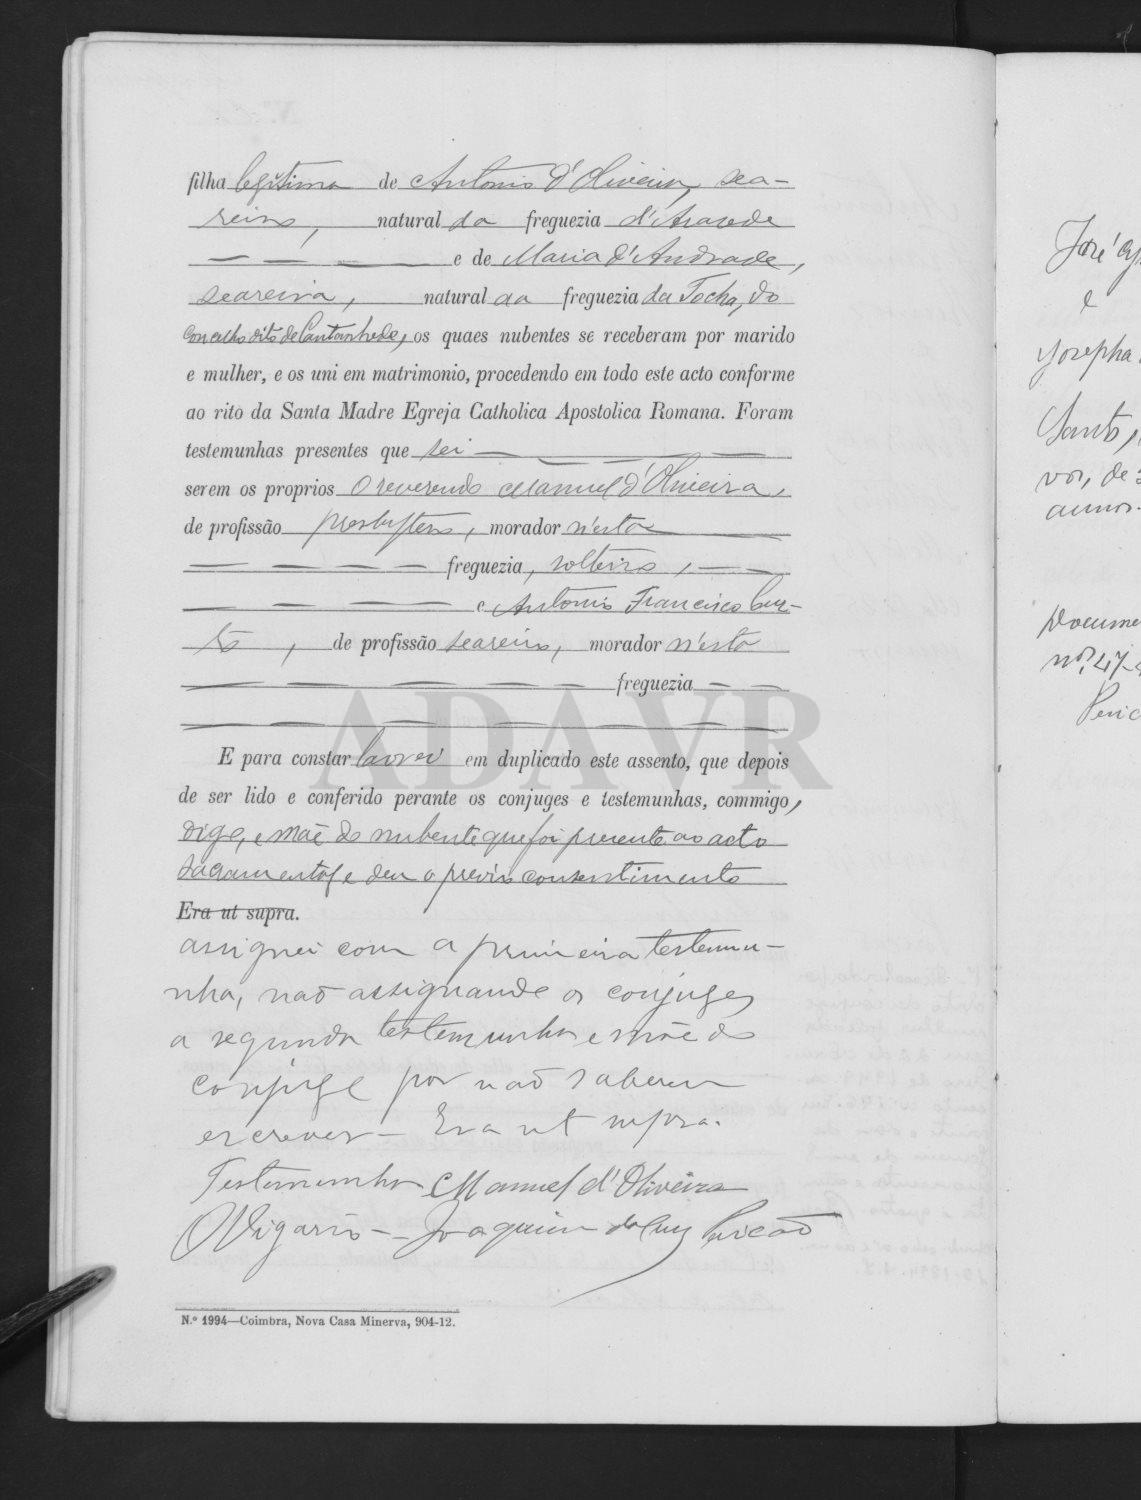 filha legitima de Antonio d'Oliveira, sea-
reiro, natural da freguezia d'Arazede
e de Maria d'Andrade,
seareira, natural da freguezia da Tocha, do
concelho dito de Cantanhede, os quaes nubentes se receberam por marido
e mulher, e os uni em matrimonio, procedendo em todo este acto conforme
ao rito da Santa Madre Egreja Catholica Apostolica Romana. Foram
testemunhas presentes que sei
serem os proprios O reverendo Manuel d'Oliveira,
de profissão presbytero, morador n'esta
freguezia, solteiro,
e Antonio Francisco Cur-
to, de profissão seareiro, morador n'esta
freguezia
E para constar lavrei em duplicado este assento, que depois
de ser lido e conferido perante os conjuges e testemunhas, commigo,
digo, e mãe do nubente que foi presente ao acto
sacramental e deu o previo consentimento
Era ut supra.
assignei com a primeira testemu-
nha, não assignando os conjuges
a segunda testemunha e mãe do
conjuge por não saberem
escrever - Era ut supra.
Testemunha Manuel d'Oliveira
O Vigario - Joaquim da Cruz Pericão
N.º 1994—Coimbra, Nova Casa Minerva, 904-12.
ADAVR
José
e
Josepha
Santo,
vos, de
annos.
Docume
nos. 47
Peric